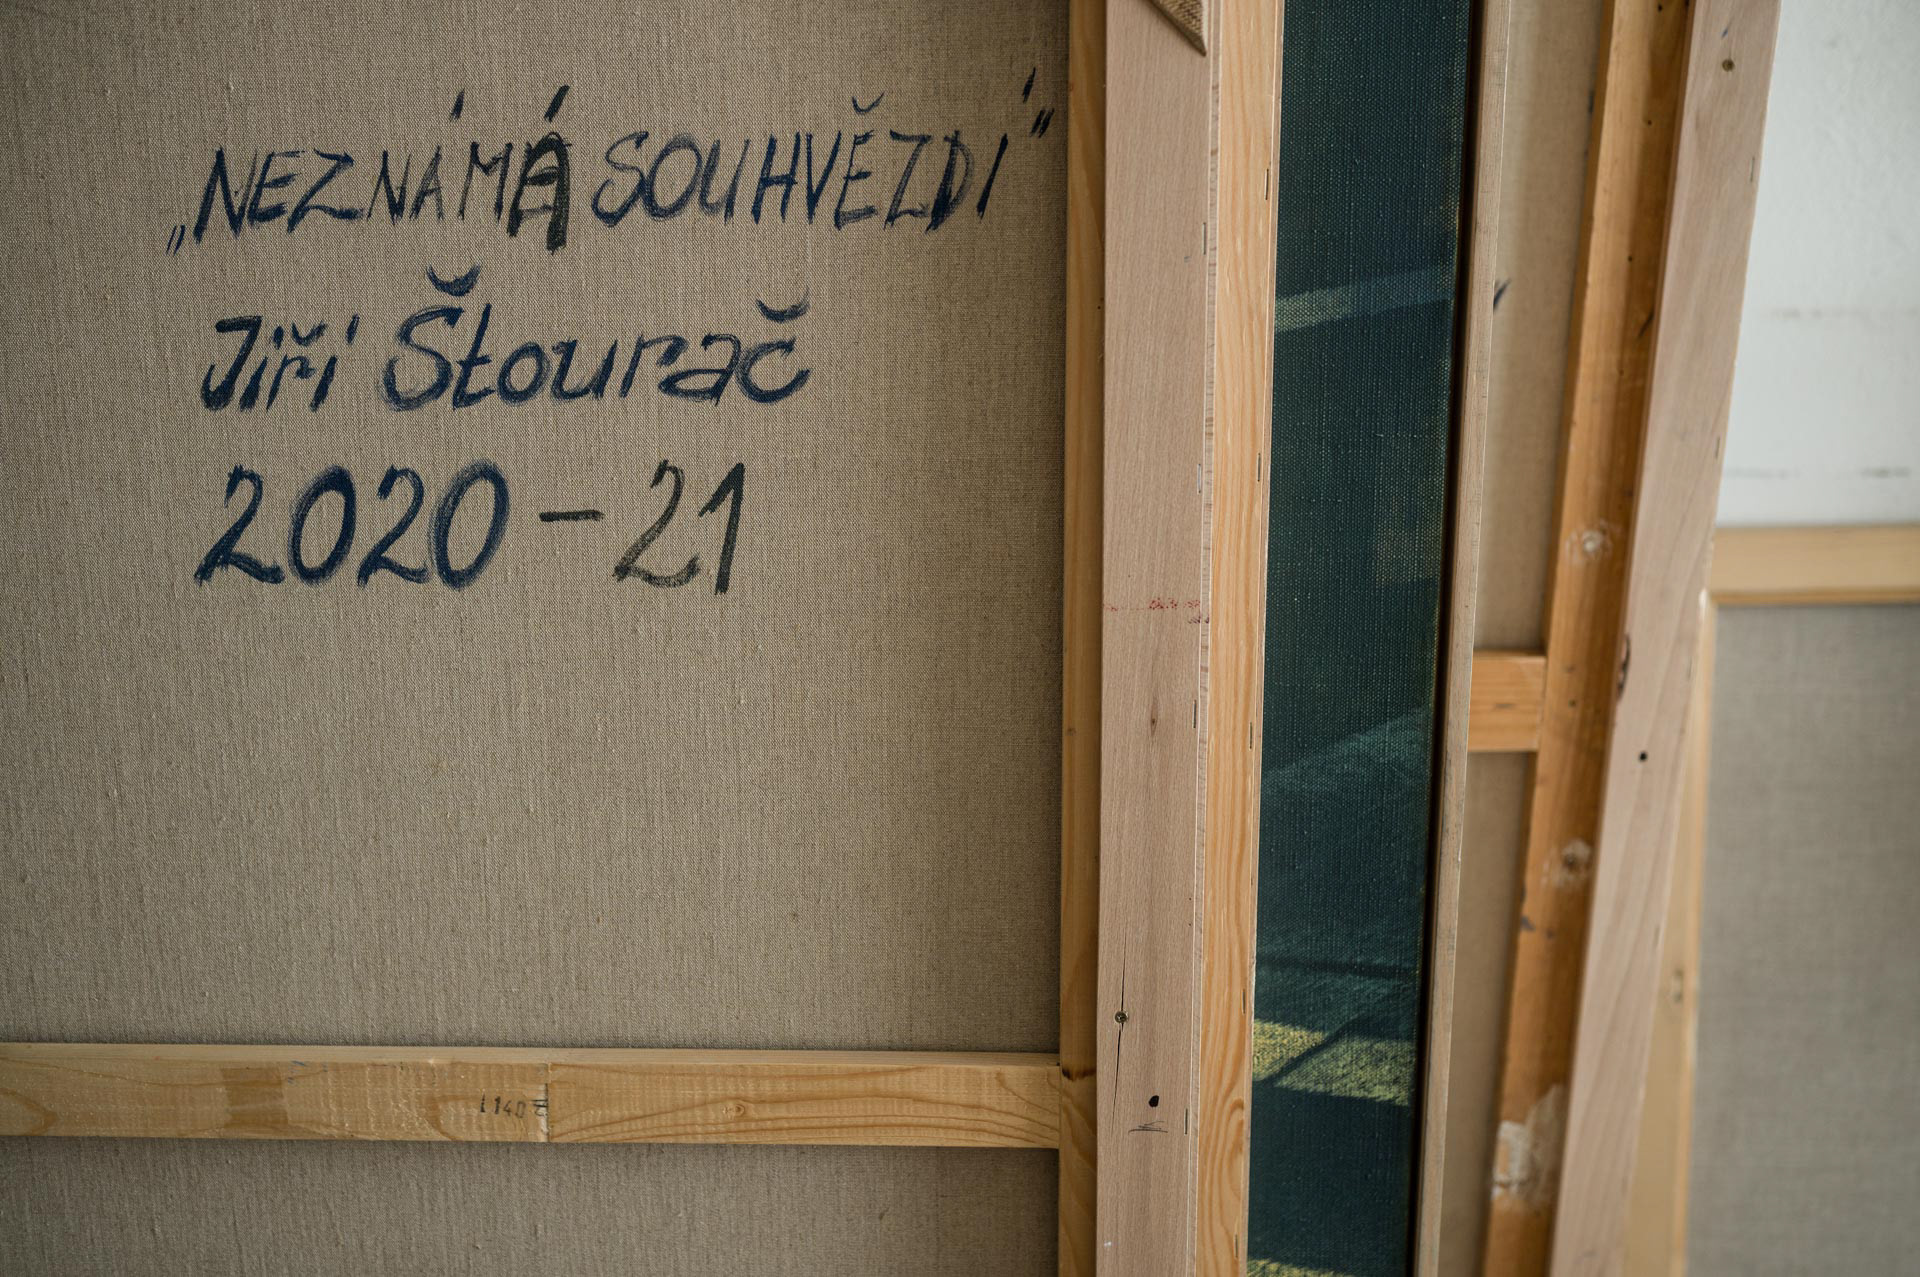 „NEZNÁMÁ SOUHVĚZDÍ"
Jiří Štourač
2020 – 21